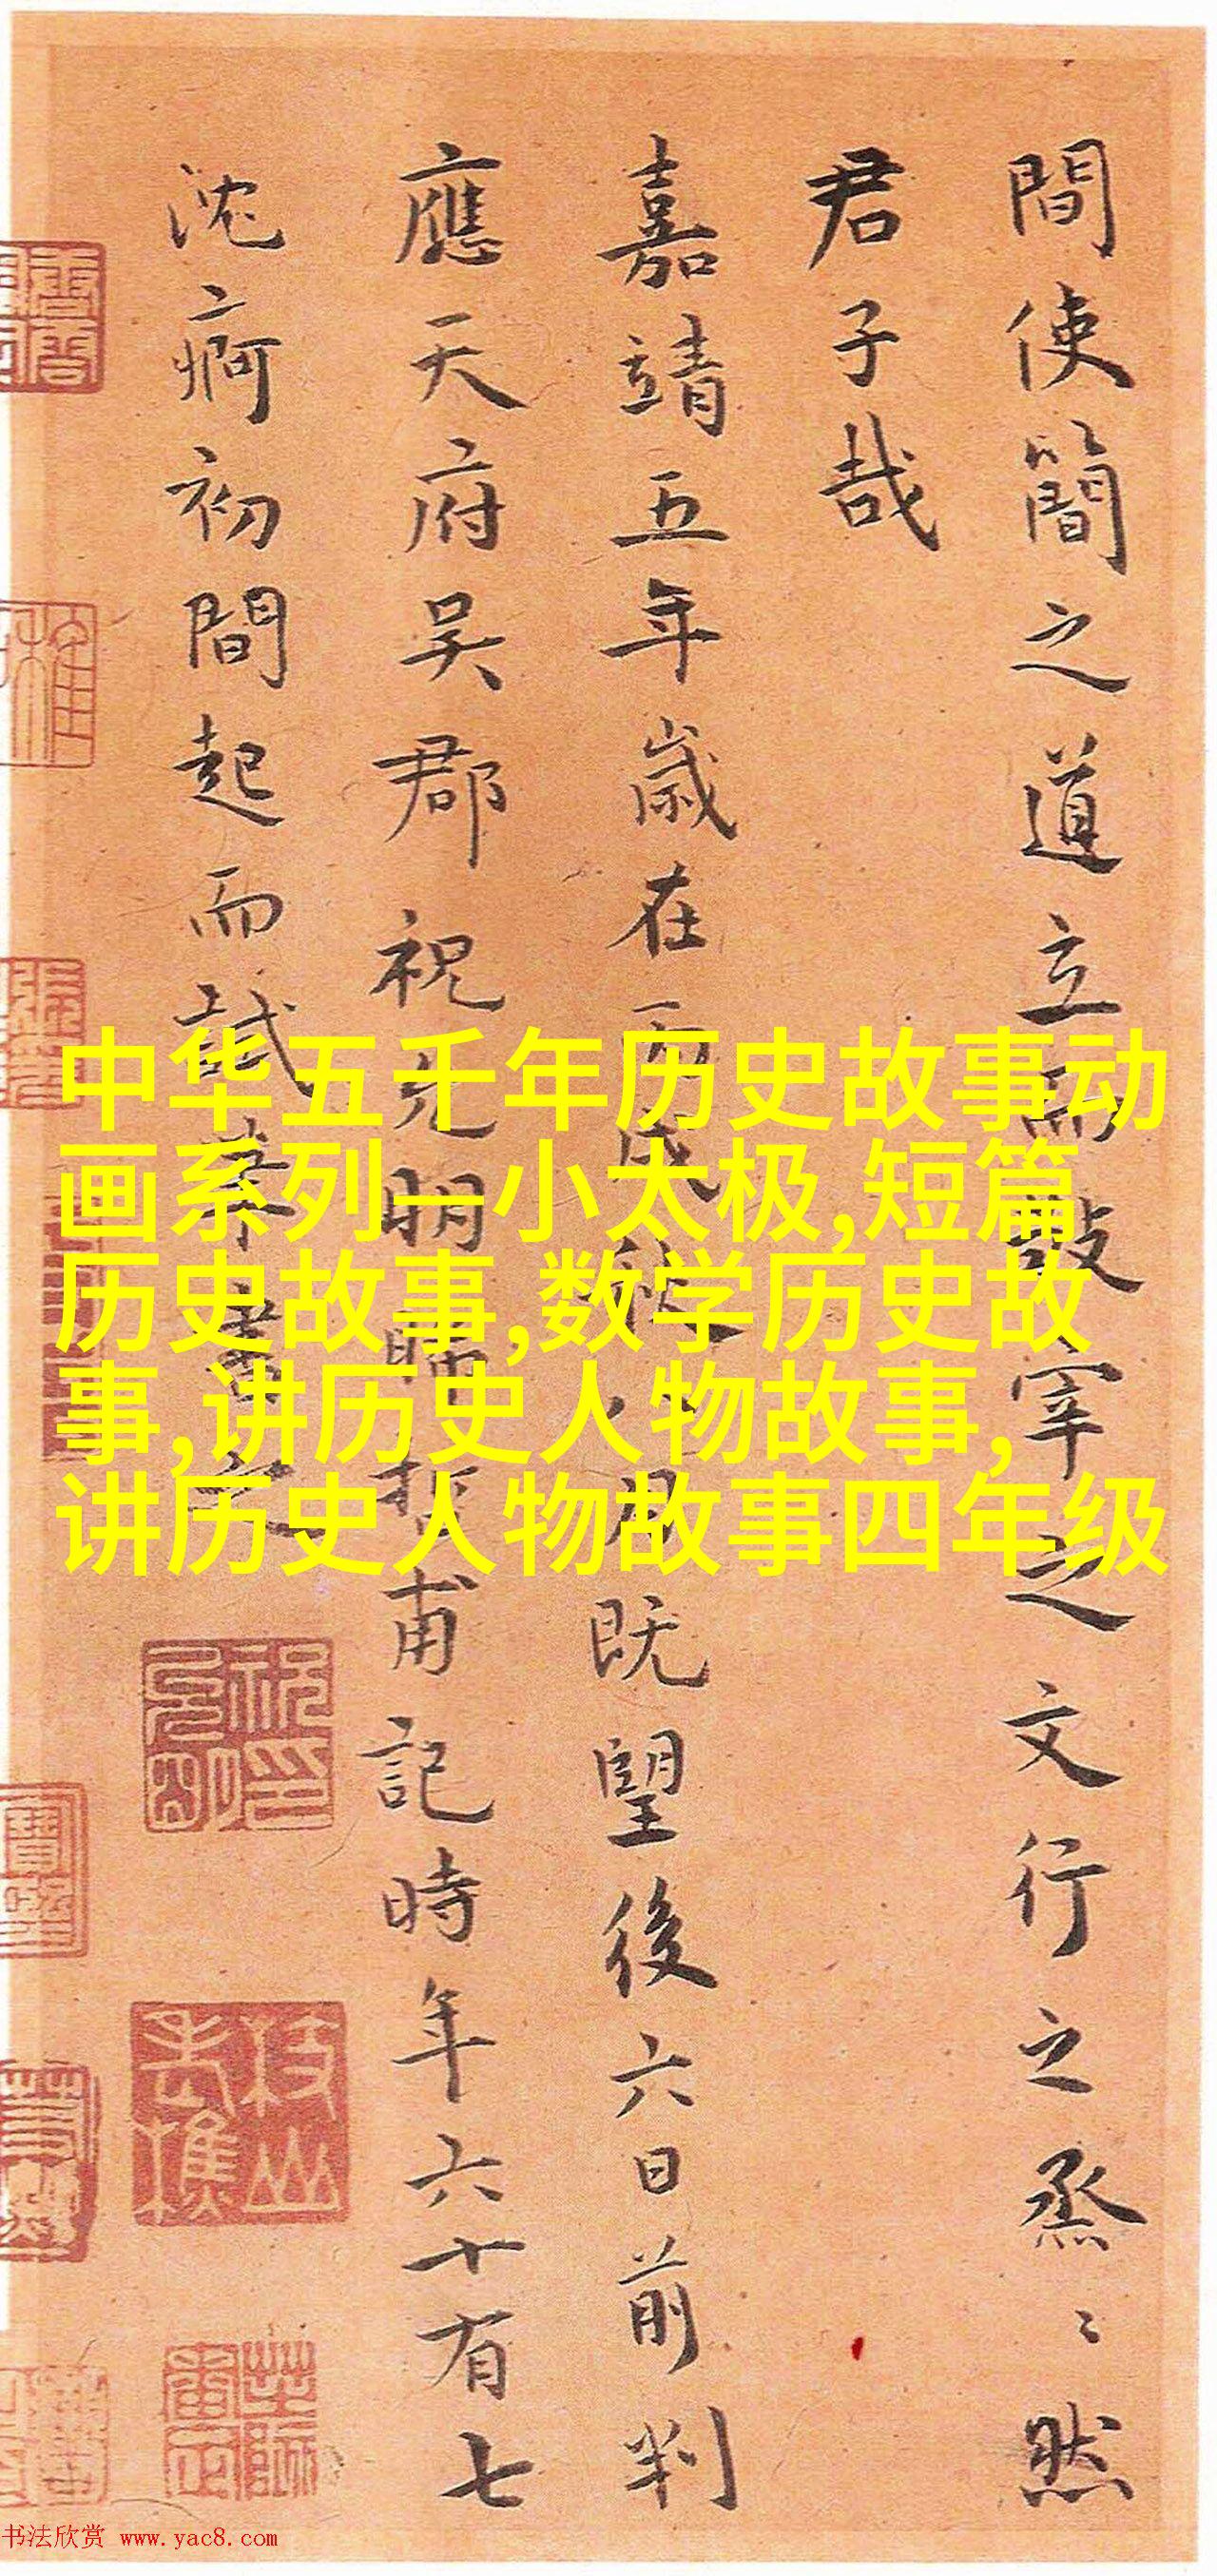 間使簡之道立而宰之文行之烝〻然
君子哉
嘉靖五年歲在丙戌秋八月既望後六日前判
應天府吳郡祝允明晞哲甫記時年六十有七
沈痾初間起而試筆書之
中华五千年历史故事动
画系列一小太极,短篇
历史故事,数学历史故
事,讲历史人物故事,
讲历史人物故事四年级
祝允明印
枝山老樵
书法欣赏 www.yac8.com